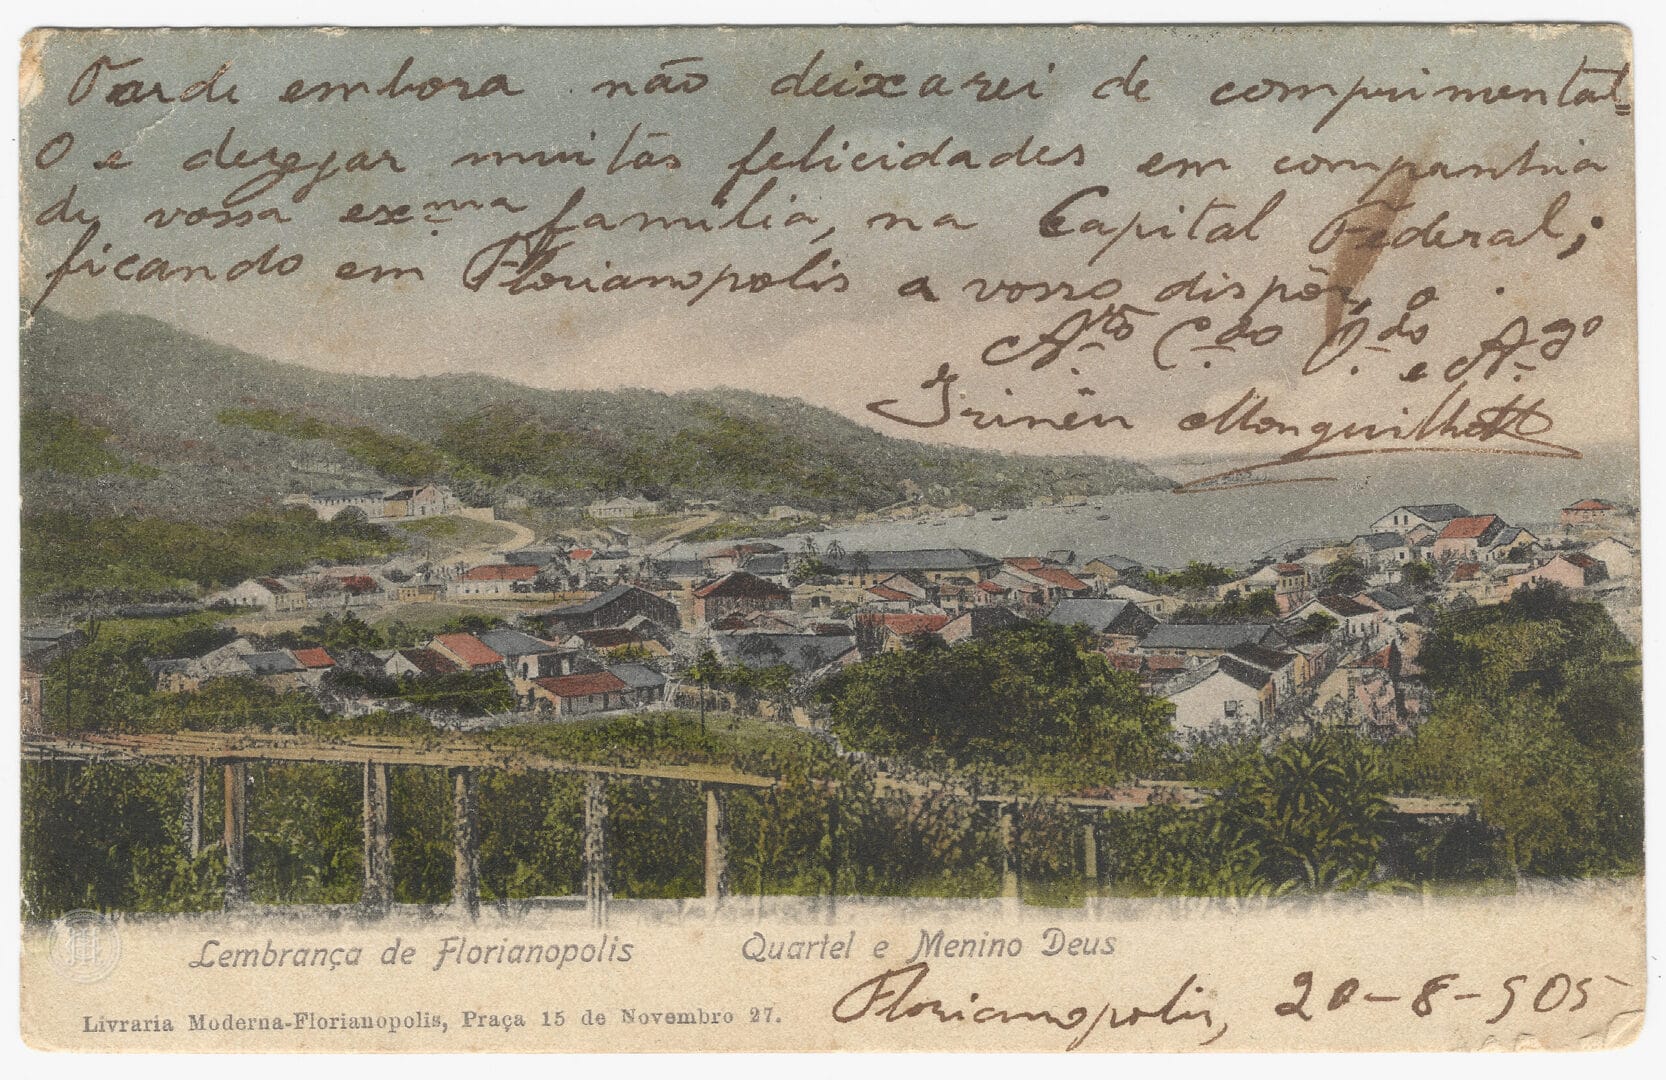 Tarde embora não deixarei de comprimental-
O e dezejar muitas felicidades em companhia
de vossa exma familia, na Capital Federal;
ficando em Florianopolis a vosso dispôr, o
Atto Cdo Odo
e Amgo
Irinêu Monguilhott
Lembrança de Florianopolis Quartel e Menino Deus
Livraria Moderna-Florianopolis, Praça 15 de Novembro 27.
Florianopolis, 20-8-905